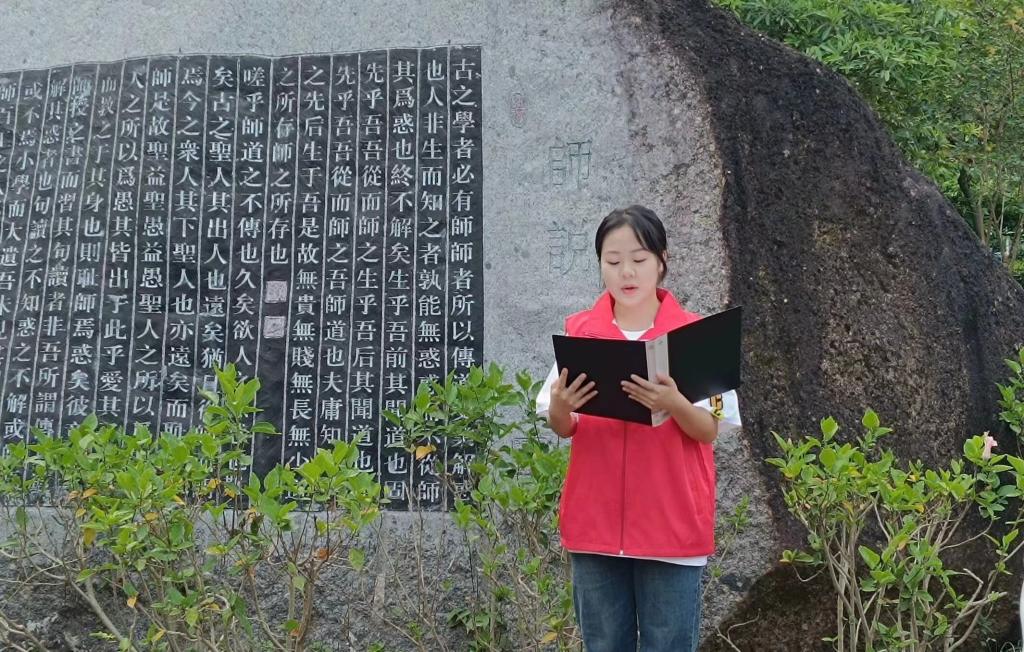 師說
古之學者必有師師者所以傳道業解惑
也人非生而知之者孰能無惑惑不從師
其爲惑也終不解矣生乎吾前其聞道也固
先乎吾吾從而師之生乎吾后其聞道也
先乎吾吾從而師之吾師道也夫庸知
之先后生于吾是故無貴無賤無長無少
之所存師之所存也
嗟乎師道之不傳也久矣欲人
矣古之聖人其出人也遠矣猶且從
焉今之衆人其下聖人也亦遠矣而
師是故聖益聖愚益愚聖人之所以
人之所以爲愚其皆出于此乎愛其
而教之于其身也則耻師焉惑矣彼
師授之書而習其句讀者非吾所謂傳
解其惑者也句讀之不知惑之不解或
或不焉小學而大遺吾未見
師百工之人